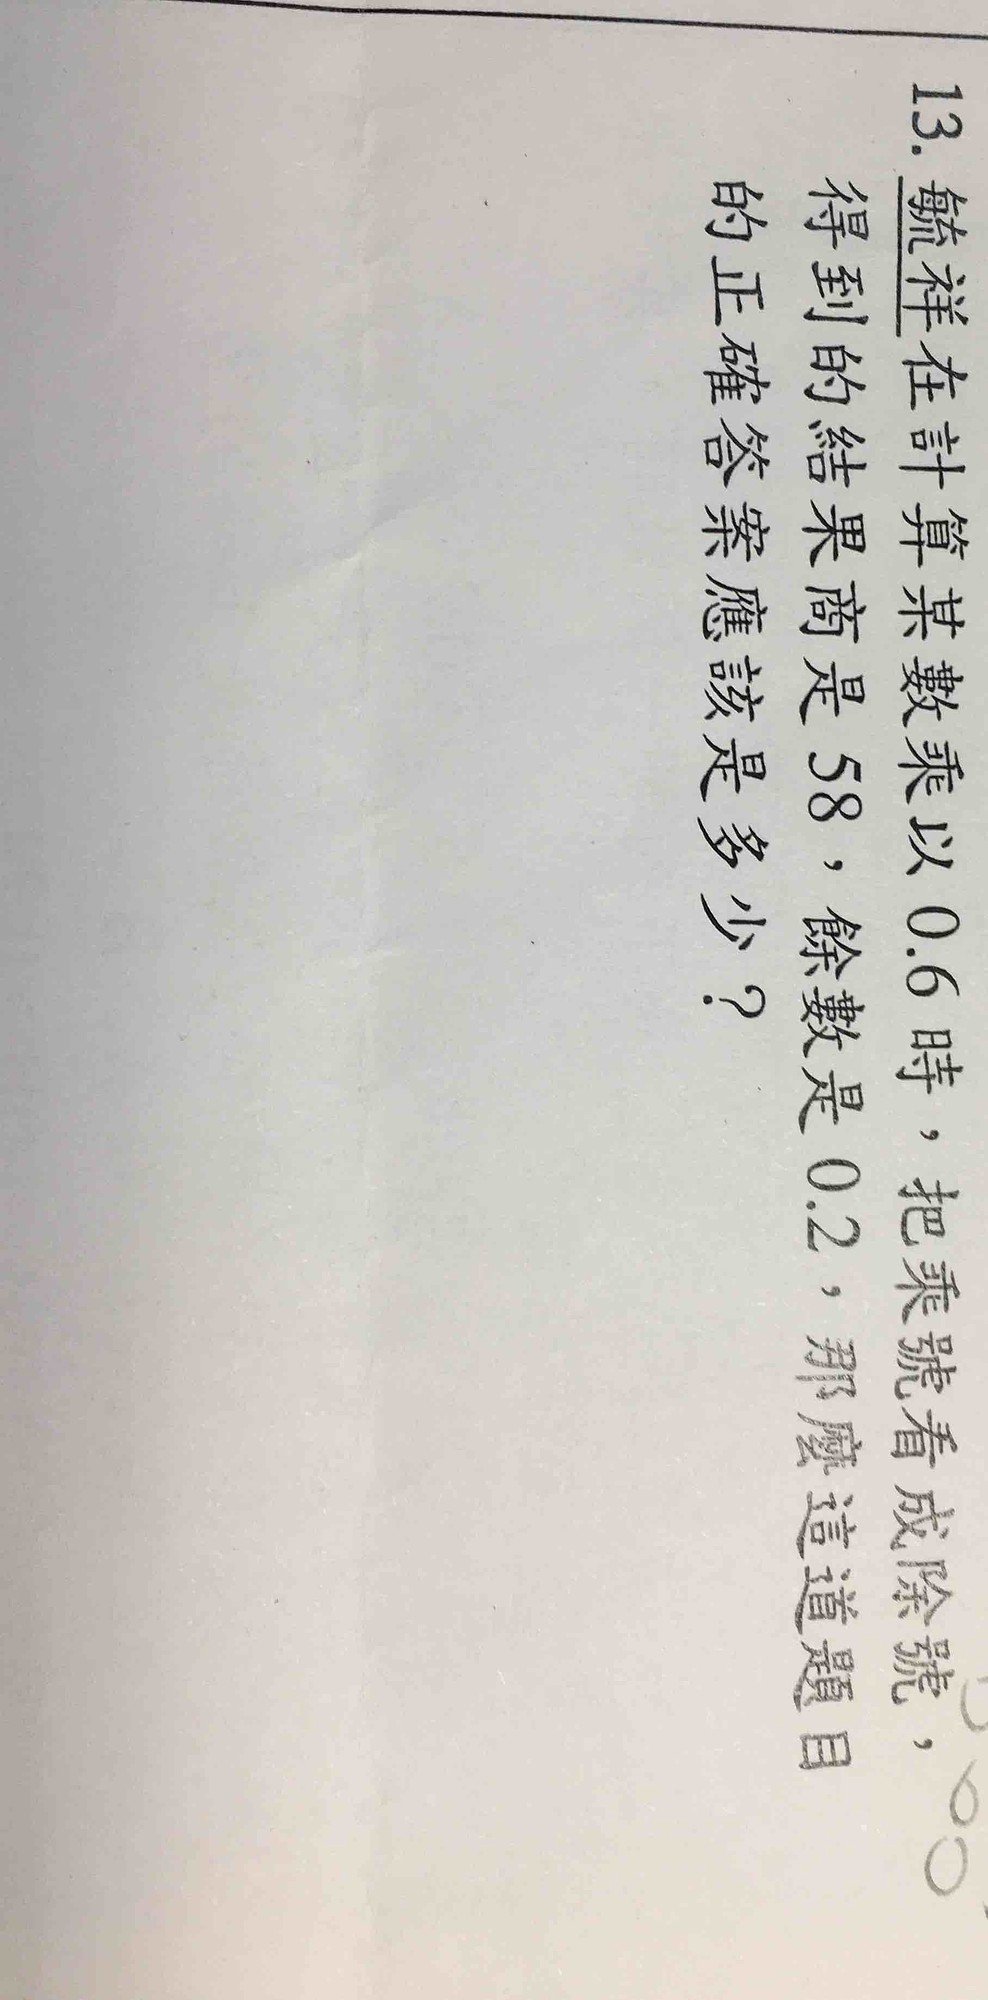 13. 毓祥在計算某數乘以 0.6 時，把乘號看成除號，
得到的結果商是 58，餘數是 0.2，那麼這道題目
的正確答案應該是多少？